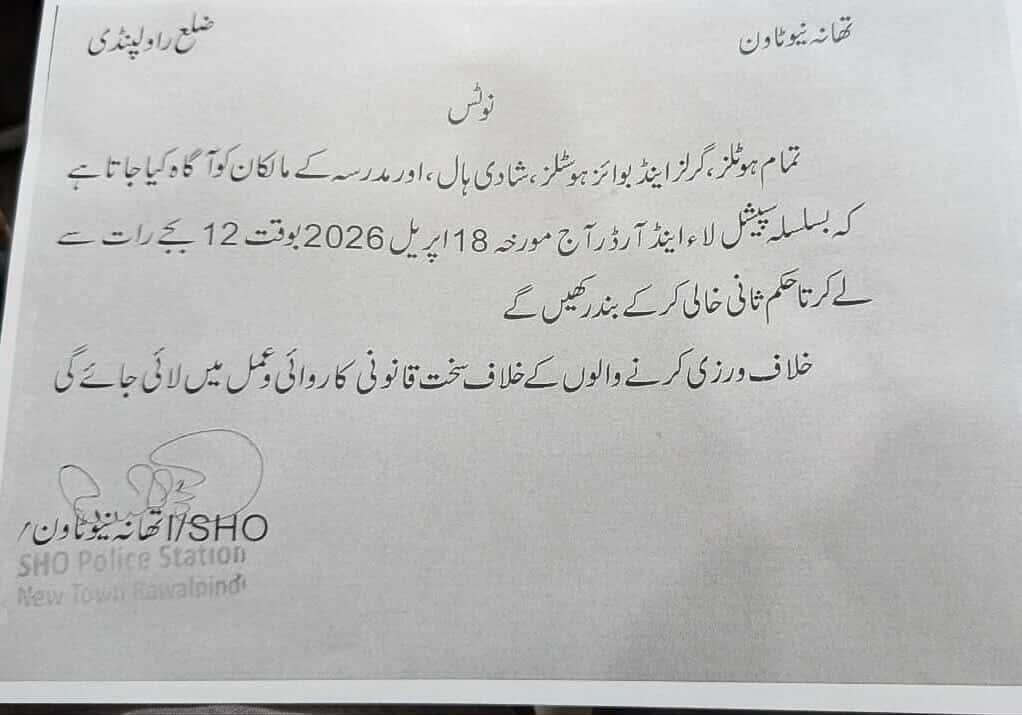 تھانہ نیوٹاون
ضلع راولپنڈی
نوٹس
تمام ہوٹلز،گرلز اینڈ بوائز ہوسٹلز،شادی ہال،اور مدرسہ کے مالکان کو آگاہ کیا جاتا ہے
کہ بسلسلہ سپیشل لاء اینڈ آرڈر آج مورخہ 18 اپریل 2026 بوقت 12 بجے رات سے
لے کر تا حکم ثانی خالی کر کے بند رکھیں گے
خلاف ورزی کرنے والوں کے خلاف سخت قانونی کاروائی و عمل میں لائی جائے گی
SHO/ا تھانہ نیوٹاون/
SHO Police Station
New Town Rawalpindi